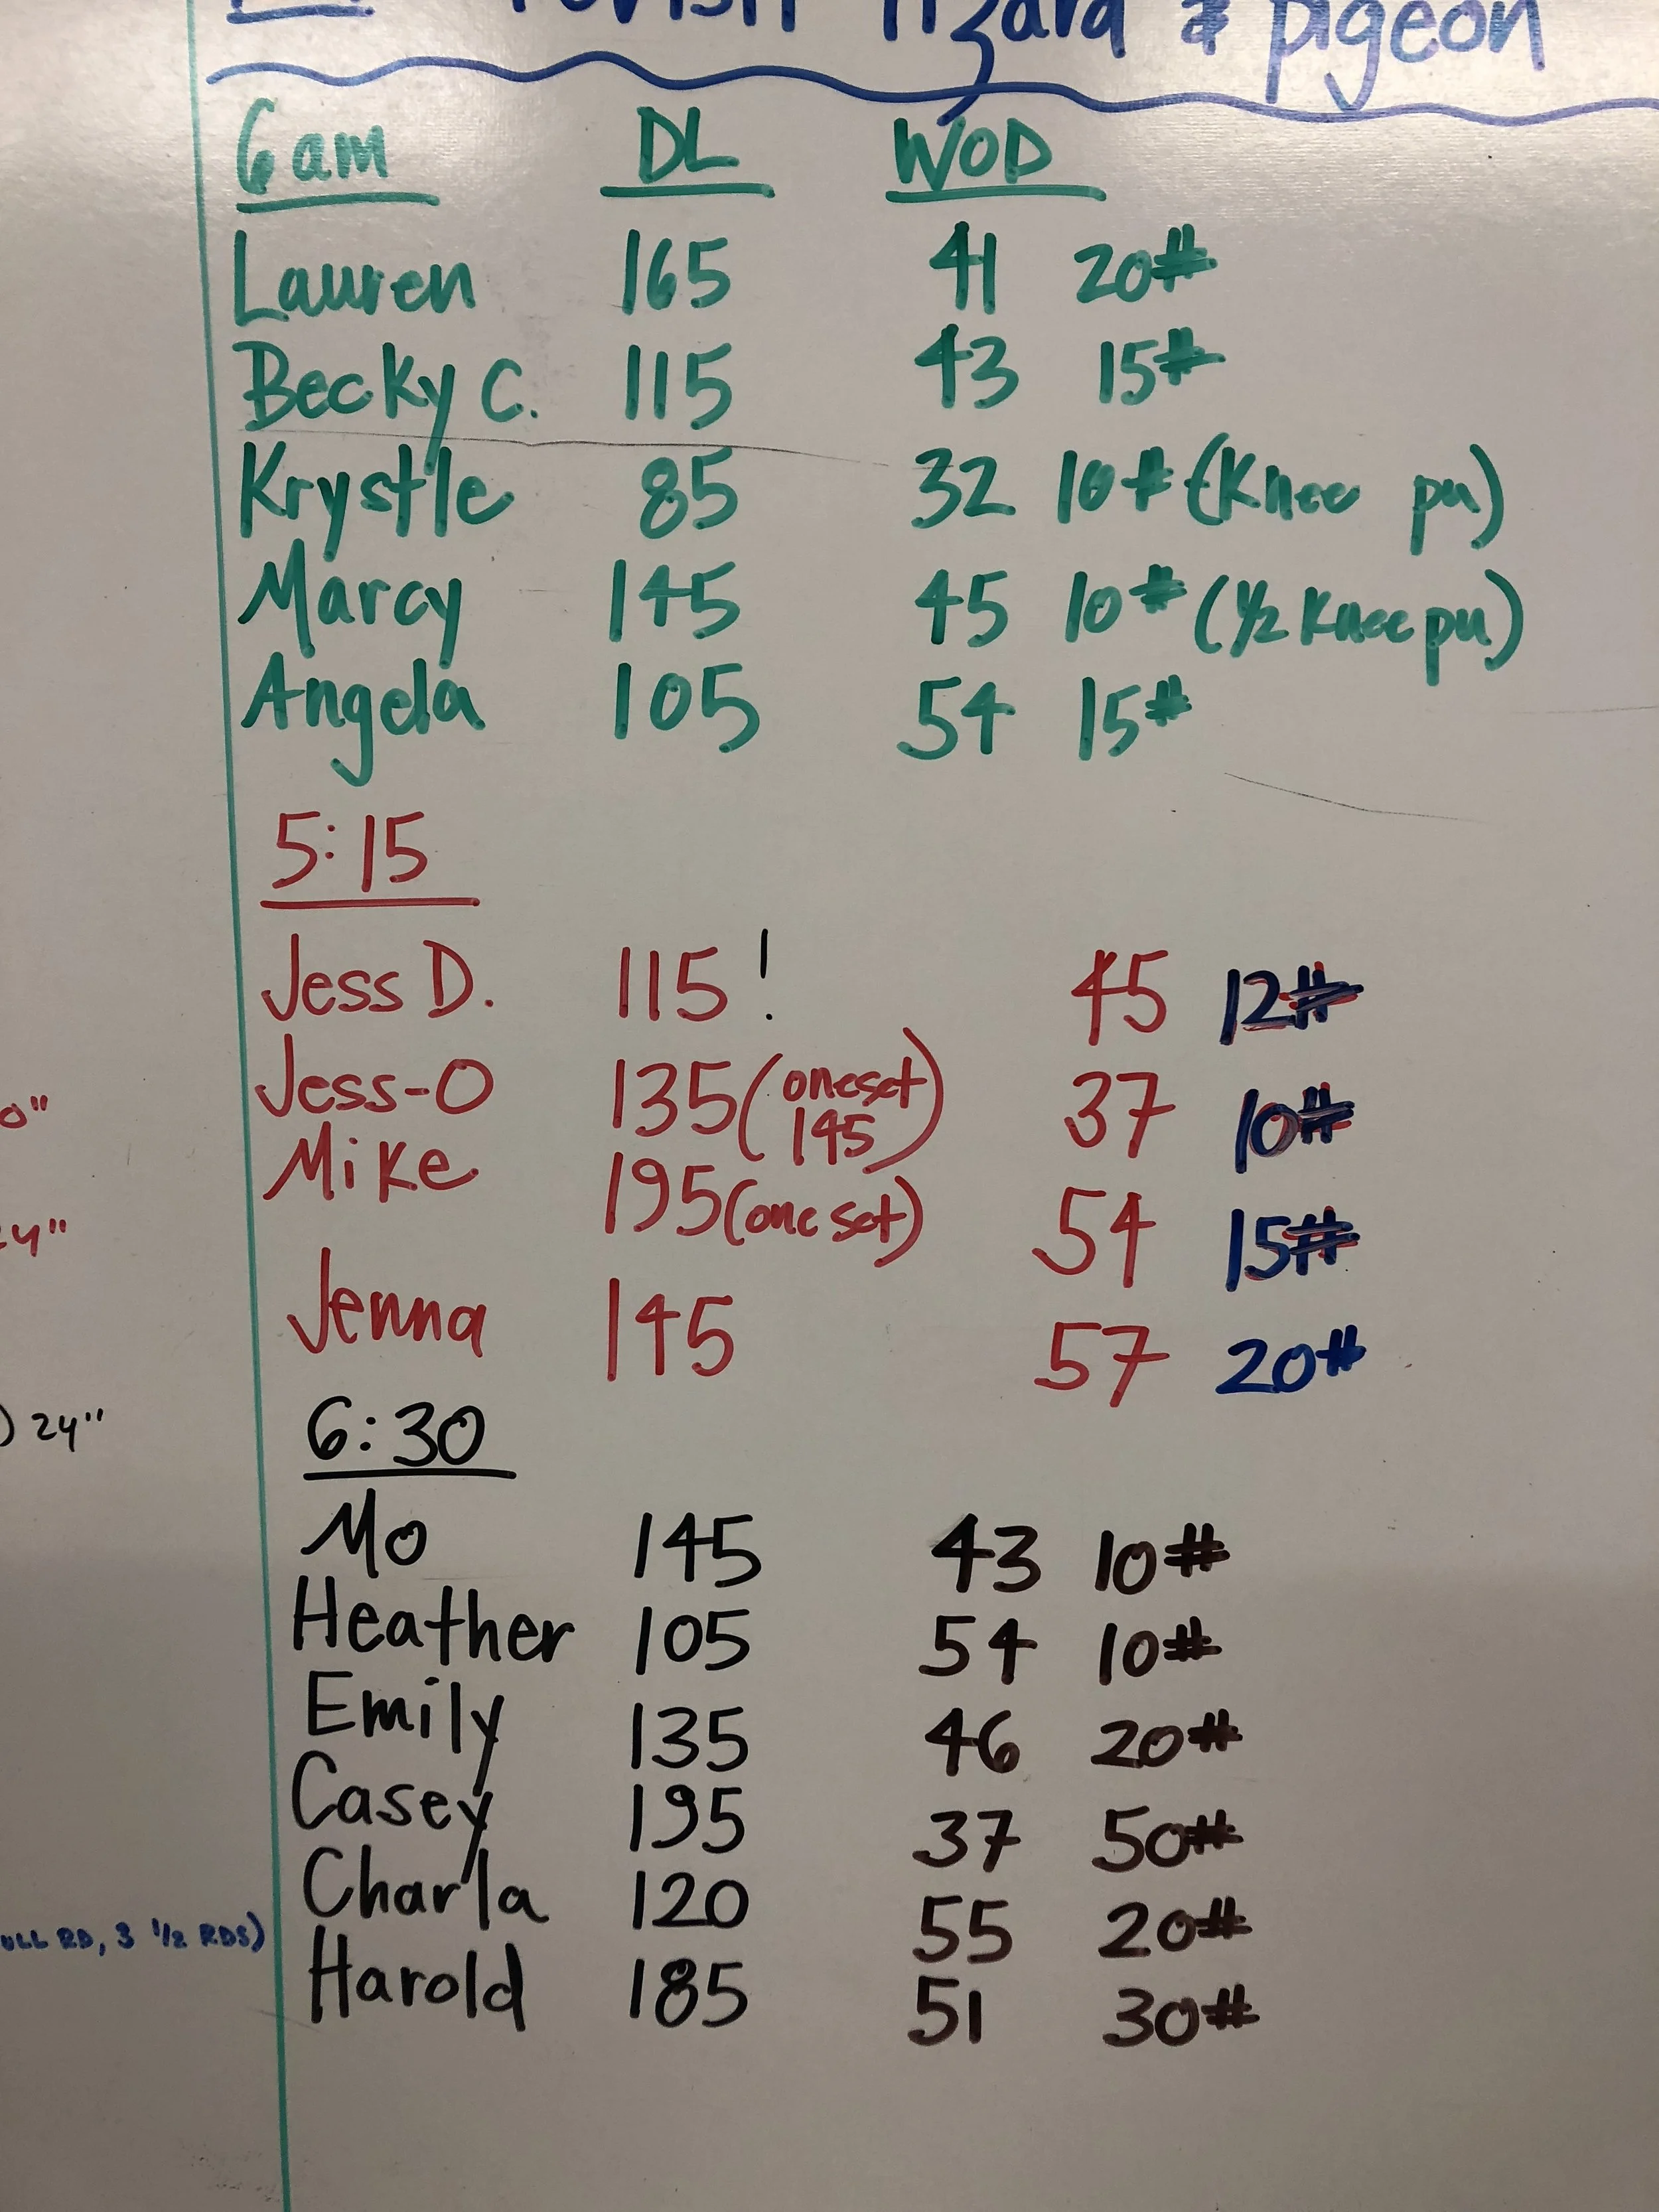 lizard & pigeon
6am DL WOD
Lauren 165 41 20#
Becky C. 115 43 15#
Krystle 85 32 10# (Knee pu)
Marcy 145 45 10# (1/2 Knee pu)
Angela 105 54 15#
5:15
Jess D. 115! 45 12#
Jess-O 135 (one set 145) 37 10#
Mike 195 (one set) 54 15#
Jenna 145 57 20#
6:30
Mo 145 43 10#
Heather 105 54 10#
Emily 135 46 20#
Casey 195 37 50#
Charla 120 55 20#
Harold 185 51 30#
0"
24"
) 24"
RD, 3 1/2 RDS)